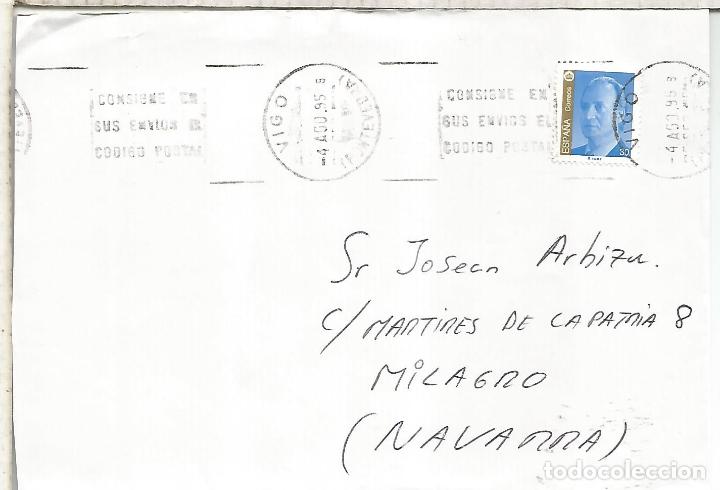 CONSIGNE EN
SUS ENVIOS EL
CODIGO POSTAL
VIGO
-4 AGO. 95
(PONTEVEDRA)
CONSIGNE EN
SUS ENVIOS EL
CODIGO POSTAL
ESPAÑA
Correos
30
VIGO
-4 AGO. 95
Sr Josean Arbizu.
C/ MARTIRES DE LA PATRIA 8
MILAGRO
(NAVARRA)
todocoleccion